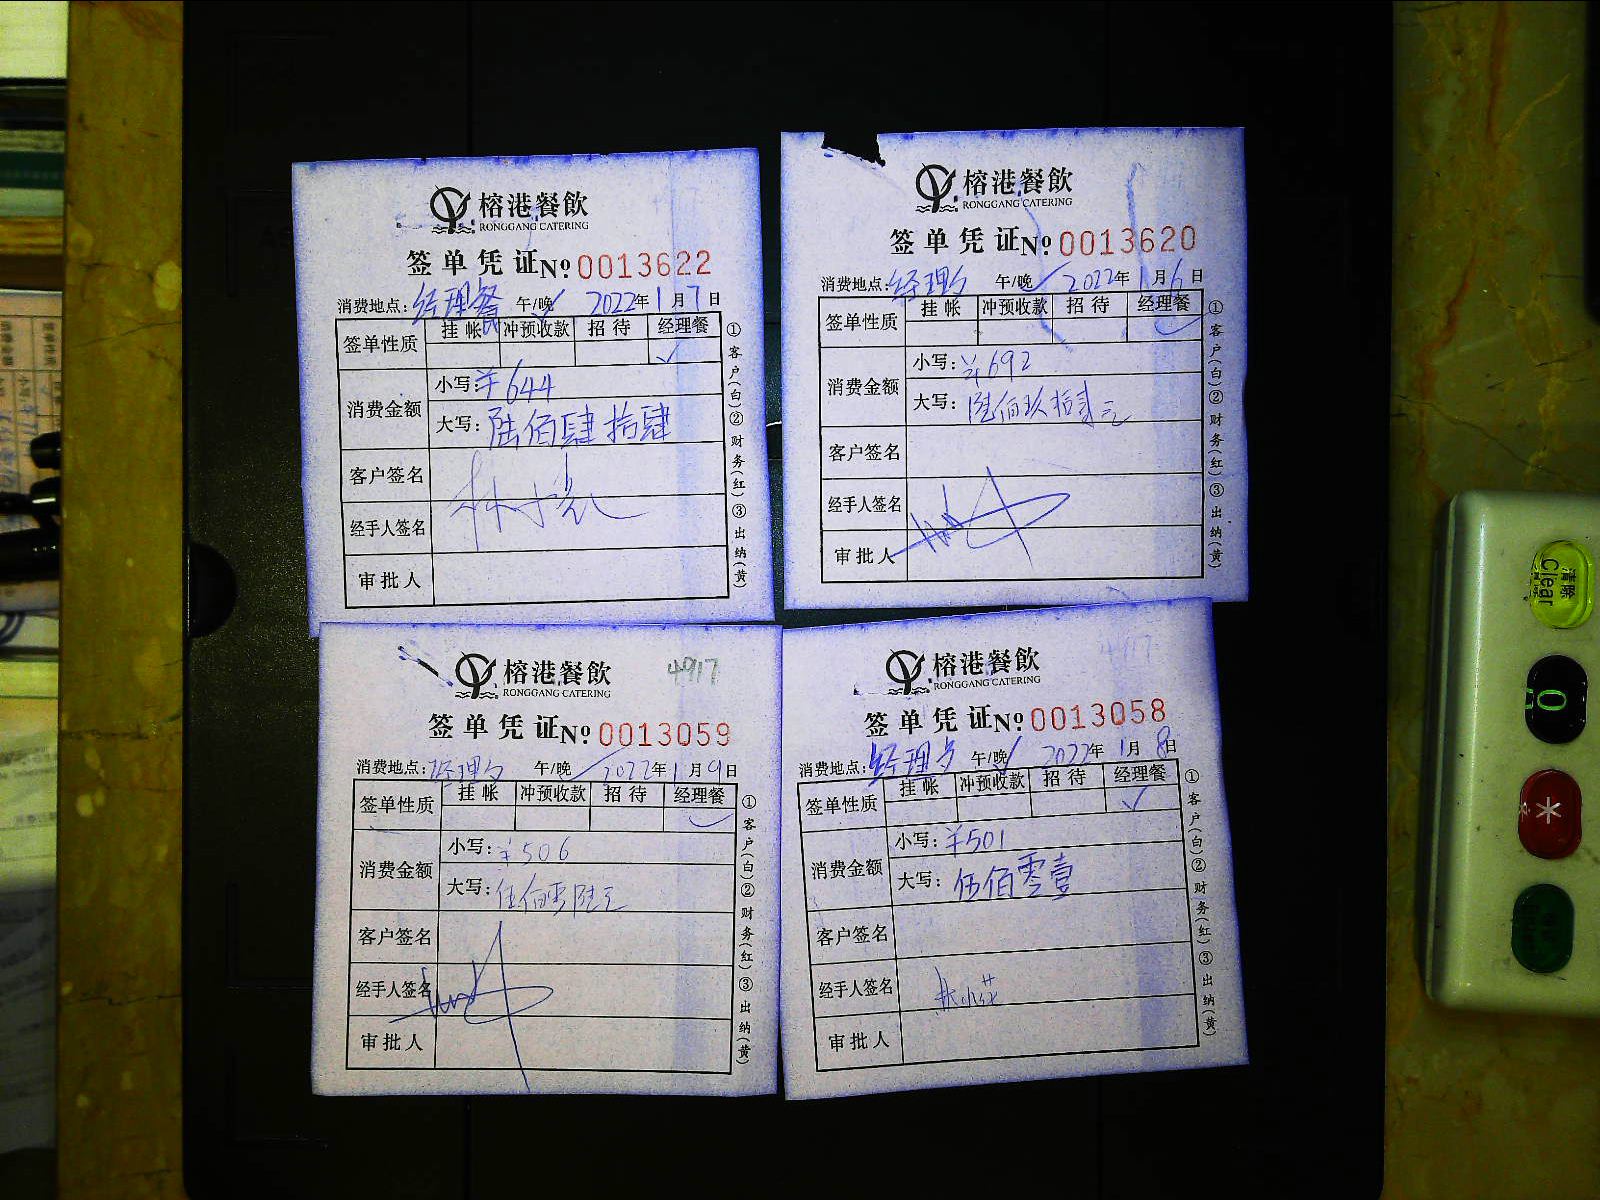 榕港餐飲
RONGGANG CATERING
签单凭证 № 0013622
消费地点：经理餐 午/晚 2022年1月7日
签单性质 挂帐 冲预收款 招待 经理餐
✓
消费金额 小写：¥644
大写：陆佰肆拾肆
客户签名
经手人签名
审批人
①客户(白)②财务(红)③出纳(黄)
榕港餐飲
RONGGANG CATERING
签单凭证 № 0013620
消费地点：经理 午/晚 2022年1月6日
签单性质 挂帐 冲预收款 招待 经理餐
✓
消费金额 小写：¥692
大写：陆佰玖拾贰元
客户签名
经手人签名
审批人
①客户(白)②财务(红)③出纳(黄)
4917
榕港餐飲
RONGGANG CATERING
签单凭证 № 0013059
消费地点：经理 午/晚 2022年1月9日
签单性质 挂帐 冲预收款 招待 经理餐
✓
消费金额 小写：¥506
大写：伍佰零陆元
客户签名
经手人签名
审批人
①客户(白)②财务(红)③出纳(黄)
4917
榕港餐飲
RONGGANG CATERING
签单凭证 № 0013058
消费地点：经理 午/晚 2022年1月8日
签单性质 挂帐 冲预收款 招待 经理餐
✓
消费金额 小写：¥501
大写：伍佰零壹
客户签名
经手人签名
审批人
①客户(白)②财务(红)③出纳(黄)
清除
Clear
0
*